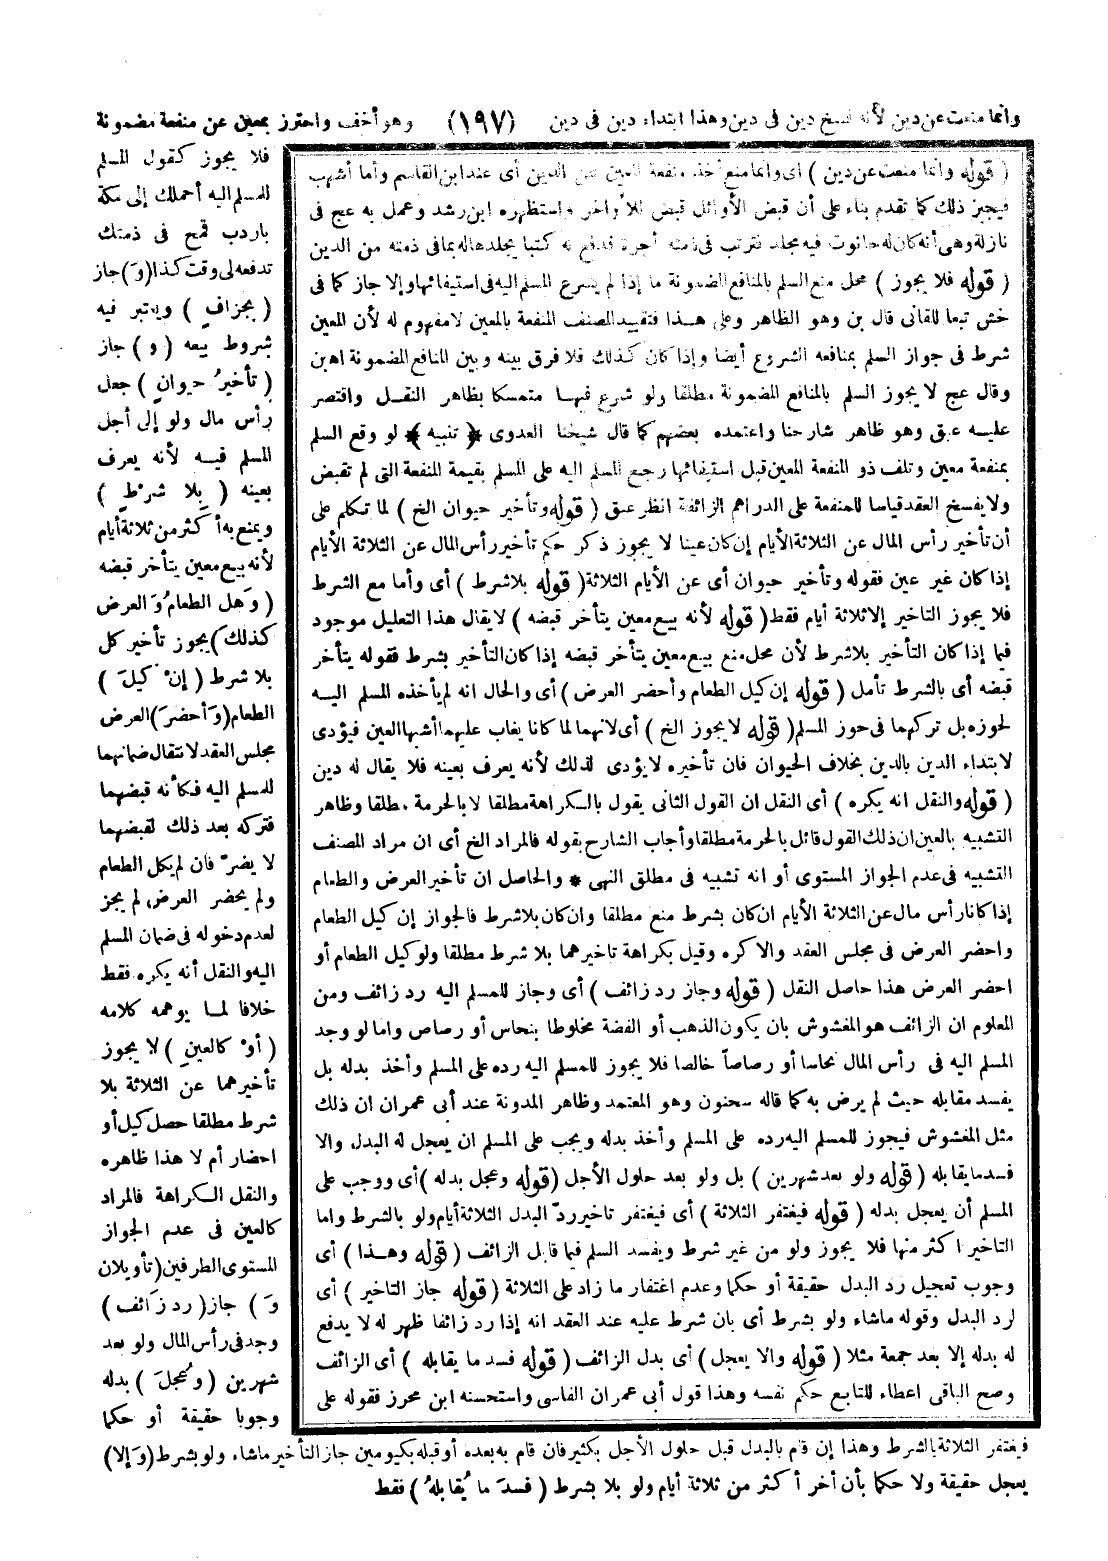 وانما منعت عن دين لأنه فسخ دين فى دين وهذا ابتداء دين فى دين (١٩٧) وهو أخف واحترز بمعين عن منفعة مضمونة
فلا يجوز كقول المسلم
للمسلم اليه أحملك إلى مكة
باردب قمح فى ذمتك
تدفعه لى وقت كذا (وَ) جاز
( بجزافٍ ) ويعتبر فيه
شروط بيعه ( و ) جاز
( تأخيرُ حيوانٍ ) جعل
رأس مال ولو إلى أجل
المسلم فيه لأنه يعرف
بعينه ( بِلا شرطٍ )
ويمنع به أكثر من ثلاثة أيام
لأنه بيع معين يتأخر قبضه
( وَهل الطعامُ وَ العرض
كذلكَ ) يجوز تأخير كل
بلا شرط ( إنْ كيلَ )
الطعام (وَ أحضرَ ) العرض
مجلس العقد لانتقال ضمانهما
للمسلم اليه فكأنه قبضهما
فتركه بعد ذلك لقبضهما
لا يضرّ فان لم يكل الطعام
ولم يحضر العرض لم يجز
لعدم دخوله فى ضمان المسلم
اليه والنقل أنه يكره فقط
خلافا لما يوهمه كلامه
( أوْ كالعينِ ) لا يجوز
تأخيرهما عن الثلاثة بلا
شرط مطلقا حصل كيل أو
احضار أم لا هذا ظاهره
والنقل الكراهة فالمراد
كالعين فى عدم الجواز
المستوى الطرفين (تأويلان
وَ ) جاز ( رد زَائف )
وجد فى رأس المال ولو بعد
شهرين ( وَعُجلَ ) بدله
وجوبا حقيقة أو حكما
( قوله وانما منعت عن دين ) أى وانما منع أخذ منفعة المعين عن الدين أى عند ابن القاسم وأما أشهب
فيجيز ذلك كما تقدم بناء على أن قبض الأوائل قبض للأواخر واستظهره ابن رشد وعمل به عج فى
نازلة وهى أنه كان له حانوت فيه مجلد فترتب فى ذمته أجرة فدفع له كتبا يجلدها له بما فى ذمته من الدين
( قوله فلا يجوز ) محل منع السلم بالمنافع المضمونة ما إذا لم يشرع المسلم اليه فى استيفائها وإلا جاز كما فى
خش تبعا للقانى قال بن وهو الظاهر وعلى هذا فتقييد المصنف المنفعة بالمعين لا مفهوم له لأن المعين
شرط فى جواز السلم بمنافعه الشروع أيضا وإذا كان كذلك فلا فرق بينه وبين المنافع المضمونة اه بن
وقال عج لا يجوز السلم بالمنافع المضمونة مطلقا ولو شرع فيها متمسكا بظاهر النقل واقتصر
عليه عبق وهو ظاهر شارحنا واعتمده بعضهم كما قال شيخنا العدوى ﴿ تنبيه ﴾ لو وقع السلم
بمنفعة معين وتلف ذو المنفعة المعين قبل استيفائها رجع المسلم اليه على المسلم بقيمة المنفعة التى لم تقبض
ولا يفسخ العقد قياسا للمنفعة على الدراهم الزائفة انظر عبق ( قوله وتأخير حيوان الخ ) لما تكلم على
أن تأخير رأس المال عن الثلاثة الأيام إن كان عينا لا يجوز ذكر حكم تأخير رأس المال عن الثلاثة الأيام
إذا كان غير عين فقوله وتأخير حيوان أى عن الأيام الثلاثة ( قوله بلا شرط ) أى وأما مع الشرط
فلا يجوز التاخير إلا ثلاثة أيام فقط ( قوله لأنه بيع معين يتأخر قبضه ) لا يقال هذا التعليل موجود
فيما إذا كان التأخير بلا شرط لأن محل منع بيع معين يتأخر قبضه إذا كان التأخير بشرط فقوله يتأخر
قبضه أى بالشرط تأمل ( قوله إن كيل الطعام وأحضر العرض ) أى والحال انه لم يأخذه المسلم اليه
لحوزه بل تركهما فى حوز المسلم ( قوله لا يجوز الخ ) أى لانهما لما كانا يغاب عليهما أشبها العين فيؤدى
لابتداء الدين بالدين بخلاف الحيوان فان تأخيره لا يؤدى لذلك لأنه يعرف بعينه فلا يقال له دين
( قوله والنقل انه يكره ) أى النقل ان القول الثانى يقول بالكراهة مطلقا لا بالحرمة مطلقا وظاهر
التشبيه بالعين ان ذلك القول قائل بالحرمة مطلقا وأجاب الشارح بقوله فالمراد الخ أى ان مراد المصنف
التشبيه فى عدم الجواز المستوى أو انه تشبيه فى مطلق النهى * والحاصل ان تأخير العرض والطعام
إذا كانا رأس مال عن الثلاثة الأيام ان كان بشرط منع مطلقا وان كان بلا شرط فالجواز إن كيل الطعام
واحضر العرض فى مجلس العقد والا كره وقيل بكراهة تاخيرهما بلا شرط مطلقا ولو كيل الطعام أو
احضر العرض هذا حاصل النقل ( قوله وجاز رد زائف ) أى وجاز للمسلم اليه رد زائف ومن
المعلوم ان الزائف هو المغشوش بان يكون الذهب أو الفضة مخلوطا بنحاس أو رصاص واما لو وجد
المسلم اليه فى رأس المال نحاسا أو رصاصاً خالصا فلا يجوز للمسلم اليه رده على المسلم وأخذ بدله بل
يفسد مقابله حيث لم يرض به كما قاله سحنون وهو المعتمد وظاهر المدونة عند أبى عمران ان ذلك
مثل المغشوش فيجوز للمسلم اليه رده على المسلم وأخذ بدله ويجب على المسلم ان يعجل له البدل والا
فسد ما يقابله ( قوله ولو بعد شهرين ) بل ولو بعد حلول الأجل ( قوله وعجل بدله ) أى ووجب على
المسلم أن يعجل بدله ( قوله فيغتفر الثلاثة ) أى فيغتفر تاخير ردّ البدل الثلاثة أيام ولو بالشرط واما
التاخير اكثر منها فلا يجوز ولو من غير شرط ويفسد السلم فيما قابل الزائف ( قوله وهذا ) أى
وجوب تعجيل رد البدل حقيقة أو حكما وعدم اغتفار ما زاد على الثلاثة ( قوله جاز التاخير ) أى
لرد البدل وقوله ماشاء ولو بشرط أى بان شرط عليه عند العقد انه إذا رد زائفا ظهر له لا يدفع
له بدله إلا بعد جمعة مثلا ( قوله والا يعجل ) أى بدل الزائف ( قوله فسد ما يقابله ) أى الزائف
وصح الباقى اعطاء للتابع حكم نفسه وهذا قول أبى عمران الفاسى واستحسنه ابن محرز فقوله على
فيغتفر الثلاثة بالشرط وهذا إن قام بالبدل قبل حلول الأجل بكثير فان قام به بعده أو قبله بكيومين جاز التأخير ماشاء ولو بشرط (وَ إلا)
يعجل حقيقة ولا حكما بأن أخر أكثر من ثلاثة أيام ولو بلا بشرط ( فسدَ ما يُقابلهُ ) فقط